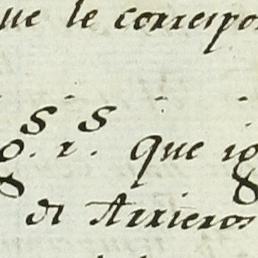 ue le correspo
s s
g. r. que ig
di Arrieros